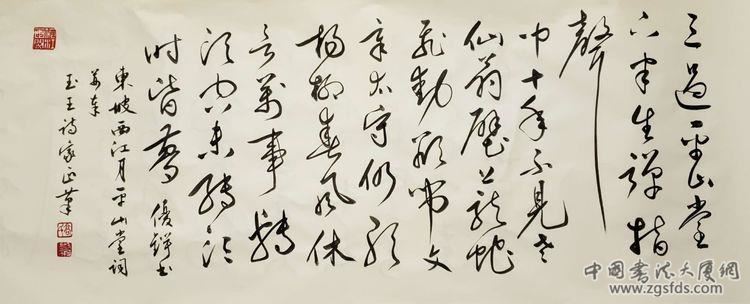 三過平山堂
下半生彈指
聲
中十年不見老
仙翁壁上龍蛇
飛動欲吊文
章太守仍歌
楊柳春風休
言萬事轉
頭空未轉頭
時皆夢
書
東坡西江月平山堂詞
玉王詩家正
中国书法大厦网
www.zgsfds.com